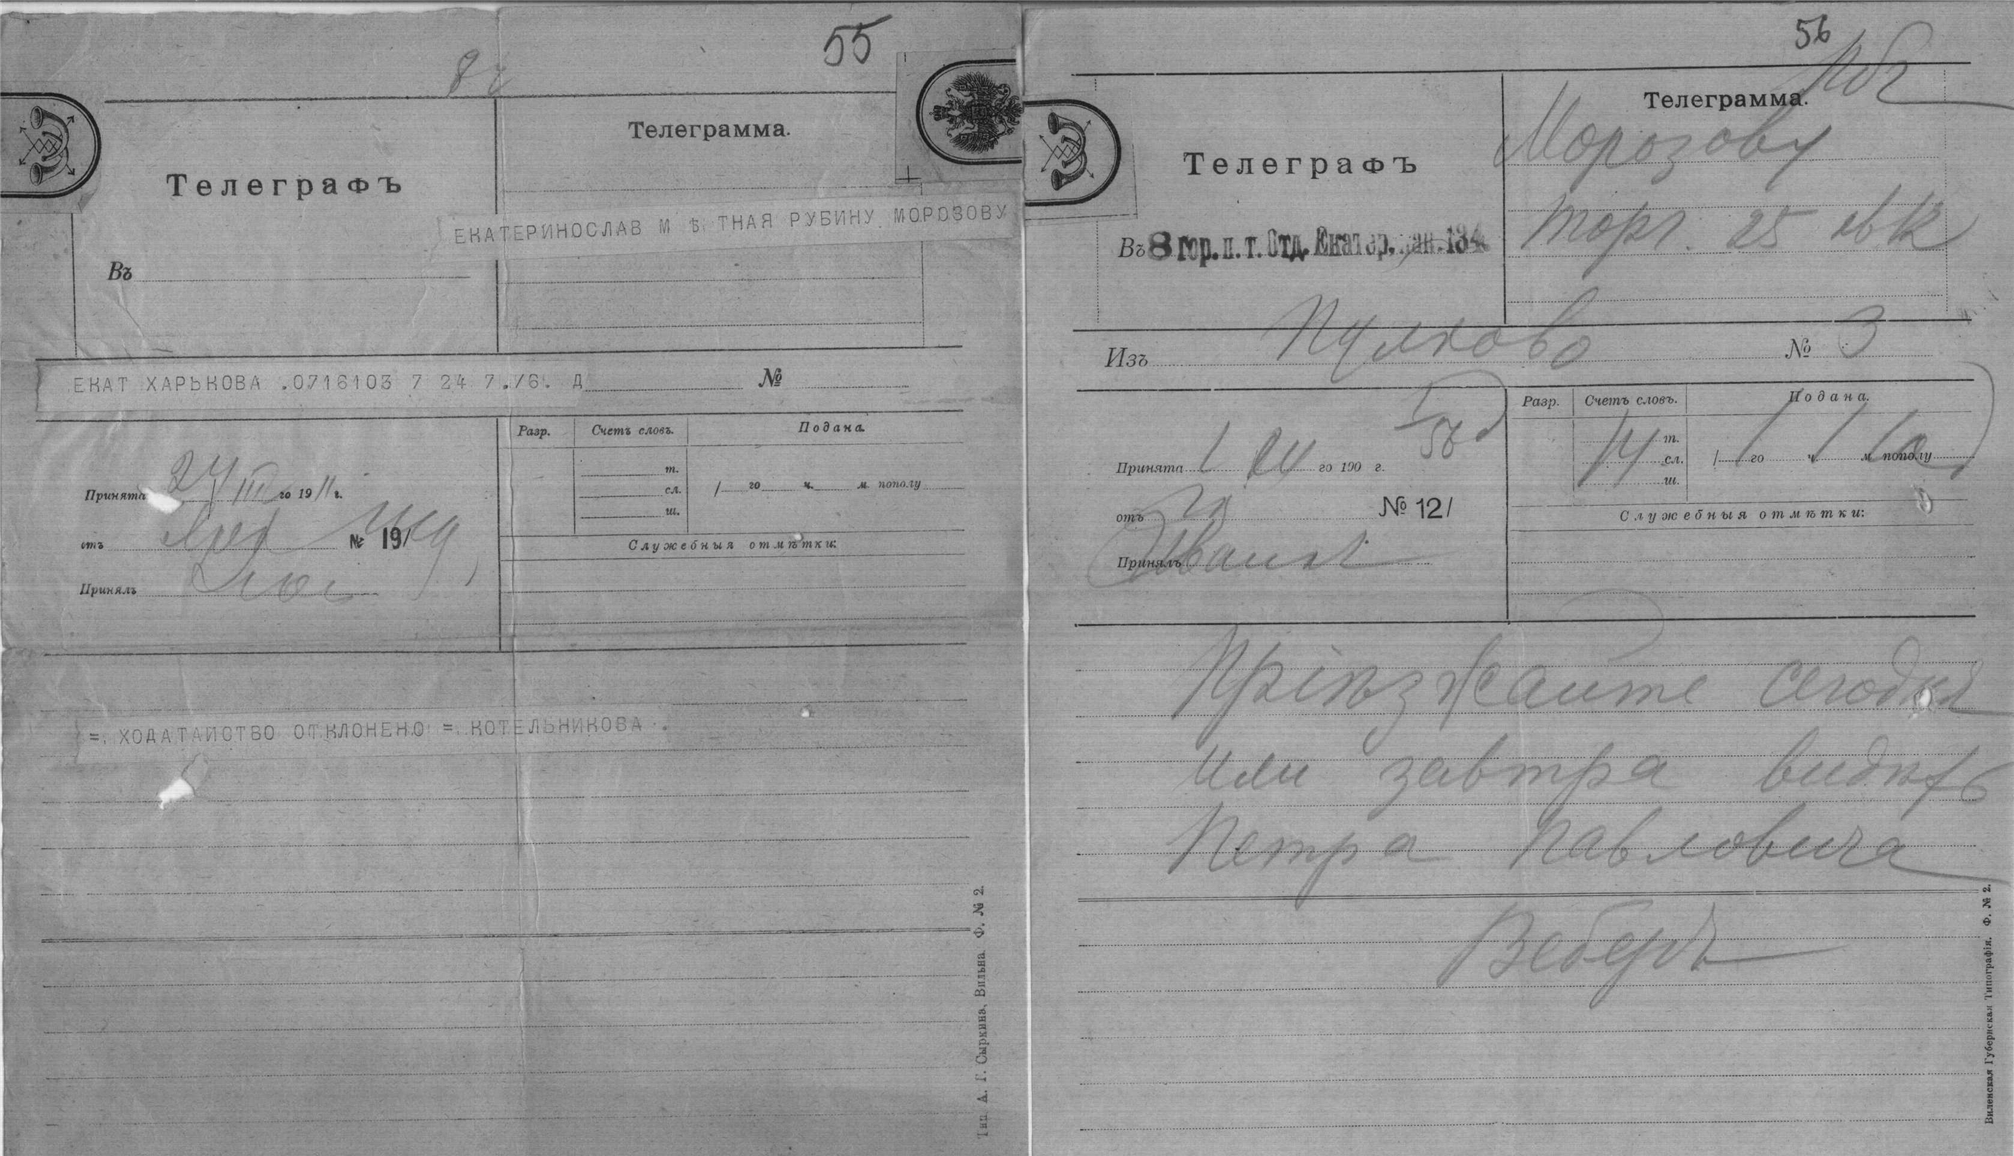 55
Телеграфъ
Телеграмма.
ЕКАТЕРИНОСЛАВ М Ѣ ТНАЯ РУБИНУ МОРОЗОВУ
Въ
ЕКАТ ХАРЬКОВА .0716103 7 24 7./6. Д
№
Принята 24 III го 1911 г.
отъ
№ 19/
Принялъ
Разр.
Счетъ словъ.
Подана.
т.
сл.
ш.
/ го ч. м. пополу
Служебныя отмѣтки:
=. ХОДАТАЙСТВО ОТКЛОНЕНО =. КОТЕЛЬНИКОВА .
Тип. А. Г. Сыркина, Вильна. Ф. № 2.
56
Телеграфъ
Телеграмма.
Морозову
Торг. 25 кв 12
Въ 8 гор. п. т. Отд. Екатер. кан. 134
Изъ Пулково № 3
Принята 1 го 190 г.
отъ
№ 12/
Принялъ
Разр.
Счетъ словъ.
Подана.
14
т.
сл.
ш.
/ го 1 ч. 10 м. пополу
Служебныя отмѣтки:
Пріѣзжайте сегодня
или завтра видѣть
Петра Павловича
Веберъ
Виленская Губернская Типографія. Ф. № 2.